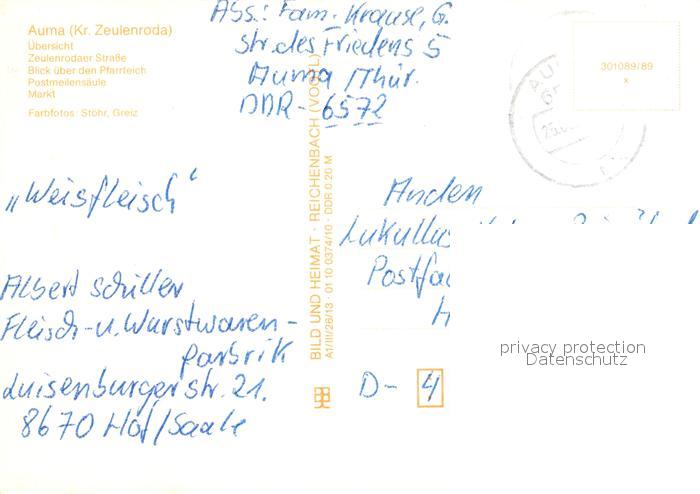 Auma (Kr. Zeulenroda)
Übersicht
Zeulenrodaer Straße
Blick über den Pfarrteich
Postmeilensäule
Markt
Farbfotos: Stöhr, Greiz
Abs.: Fam. Krause, G.
Str. des Friedens 5
Auma /Thür.
DDR - 6572
301089/89
x
AU
„Weisfleisch"
BILD UND HEIMAT · REICHENBACH (VOGTL)
A1/III/26/13 · 01 10 0374/10 · DDR 0,20 M
An den
Lukullu
Postfac
Albert Schiller
Fleisch- u. Wurstwaren-
farbrik
Luisenburger str. 21.
8670 Hof/Saale
D - 4
privacy protection
Datenschutz